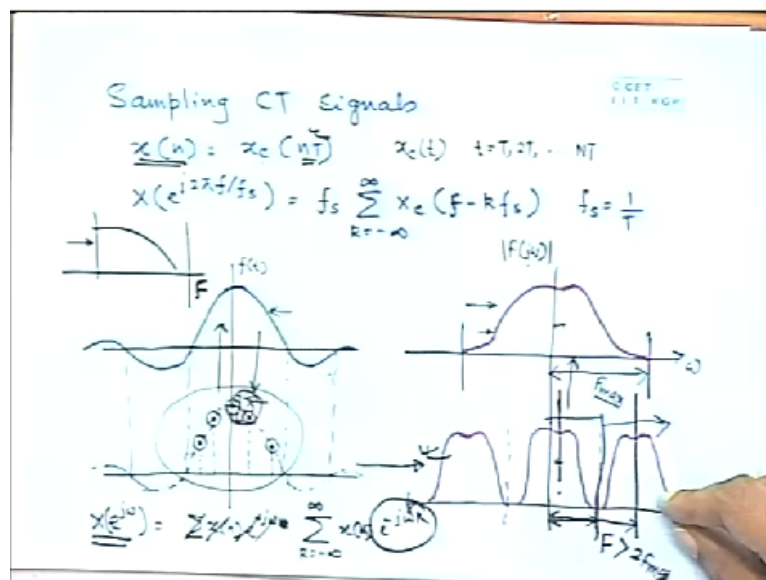 Sampling CT signals
© CET
I.I.T. KGP
x(n) = x_c(nT) x_c(t) t = T, 2T, ... NT
X(e^{j2πf/fs}) = fs ∑_{k=-∞}^{∞} x_c(f - kfs) fs = 1/T
F
f(t)
|F(jω)|
ω
Fmax
X(e^{jω}) = ∑_{k=-∞}^{∞}
F > 2Fmax